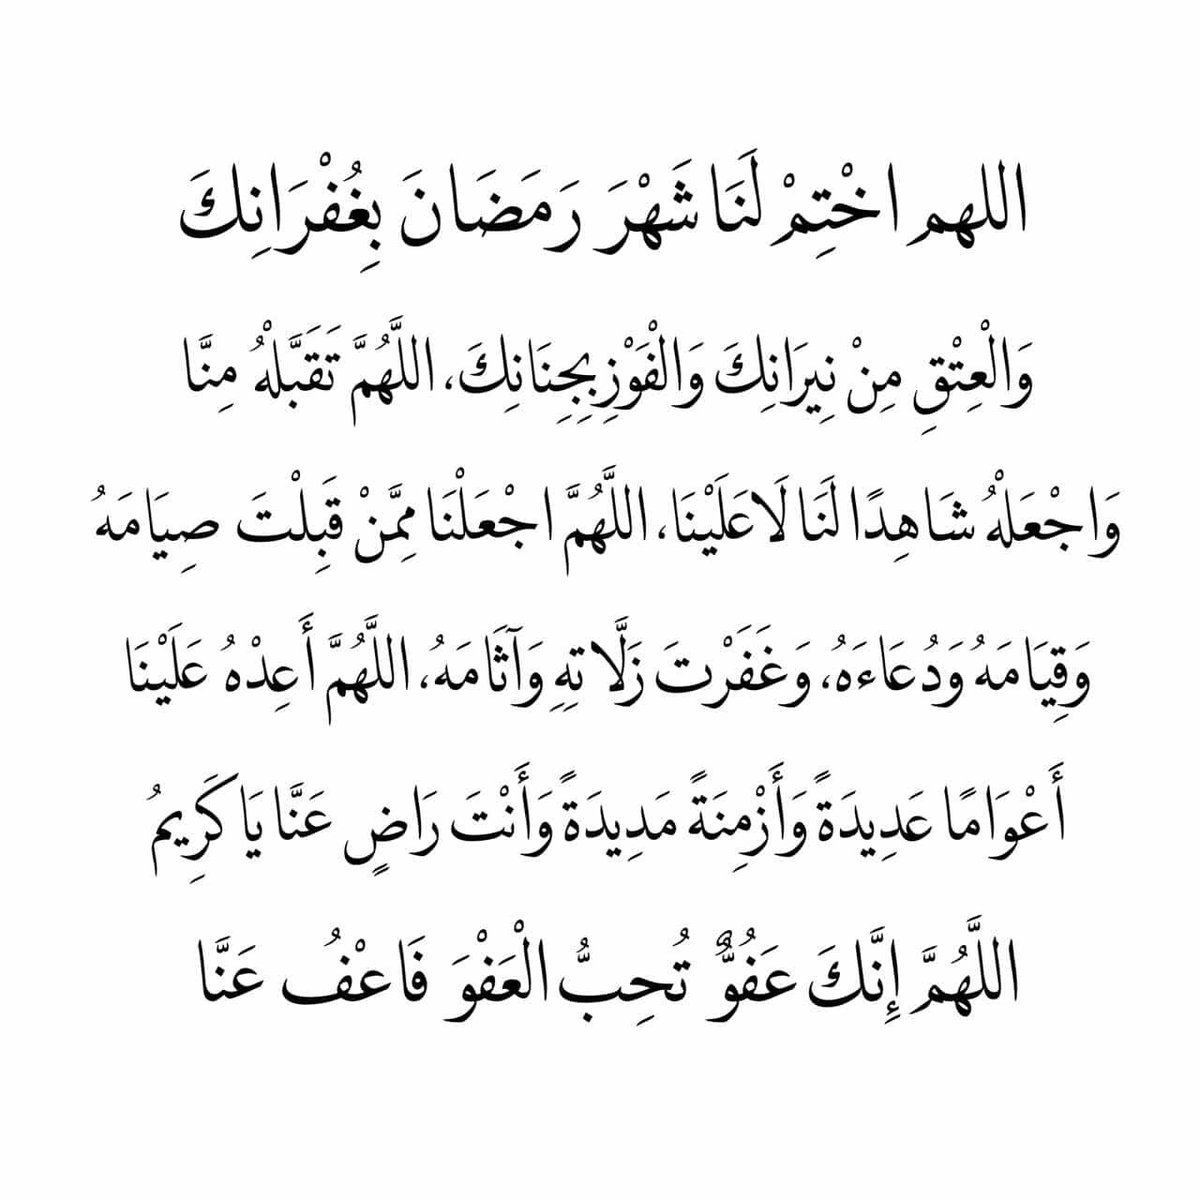 اللهم اخْتِمْ لَنَا شَهْرَ رَمَضَانَ بِغُفْرَانِكَ
وَالْعِتْقِ مِنْ نِيرَانِكَ وَالْفَوْزِ بِجِنَانِكَ، اللَّهُمَّ تَقَبَّلْهُ مِنَّا
وَاجْعَلْهُ شَاهِدًا لَنَا لَا عَلَيْنَا، اللَّهُمَّ اجْعَلْنَا مِمَّنْ قَبِلْتَ صِيَامَهُ
وَقِيَامَهُ وَدُعَاءَهُ، وَغَفَرْتَ زَلَّاتِهِ وَآثَامَهُ، اللَّهُمَّ أَعِدْهُ عَلَيْنَا
أَعْوَامًا عَدِيدَةً وَأَزْمِنَةً مَدِيدَةً وَأَنْتَ رَاضٍ عَنَّا يَا كَرِيمُ
اللَّهُمَّ إِنَّكَ عَفُوٌّ تُحِبُّ الْعَفْوَ فَاعْفُ عَنَّا